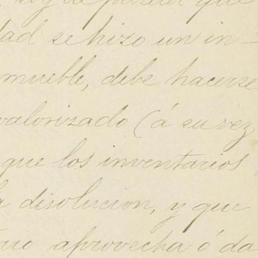 de parecer que
dad se hizo un in-
mueble, debe hacerse
valorizado (á su vez
que los inventarios
la disolucion, y que
aprovecha ó da